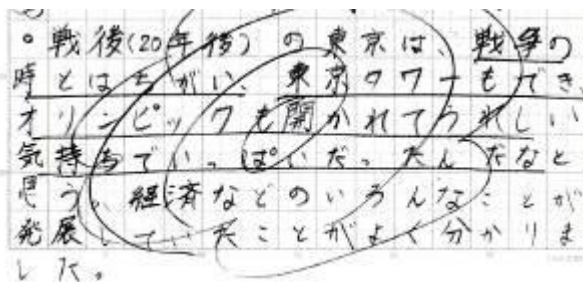 。戦後(20年後)の東京は、戦争の
時とはちがい、東京タワーもでき、
オリンピックも開かれてうれしい
気持ちでいっぱいだったんだなと
思う。経済などのいろんなことが
発展していたことがよく分かりま
した。